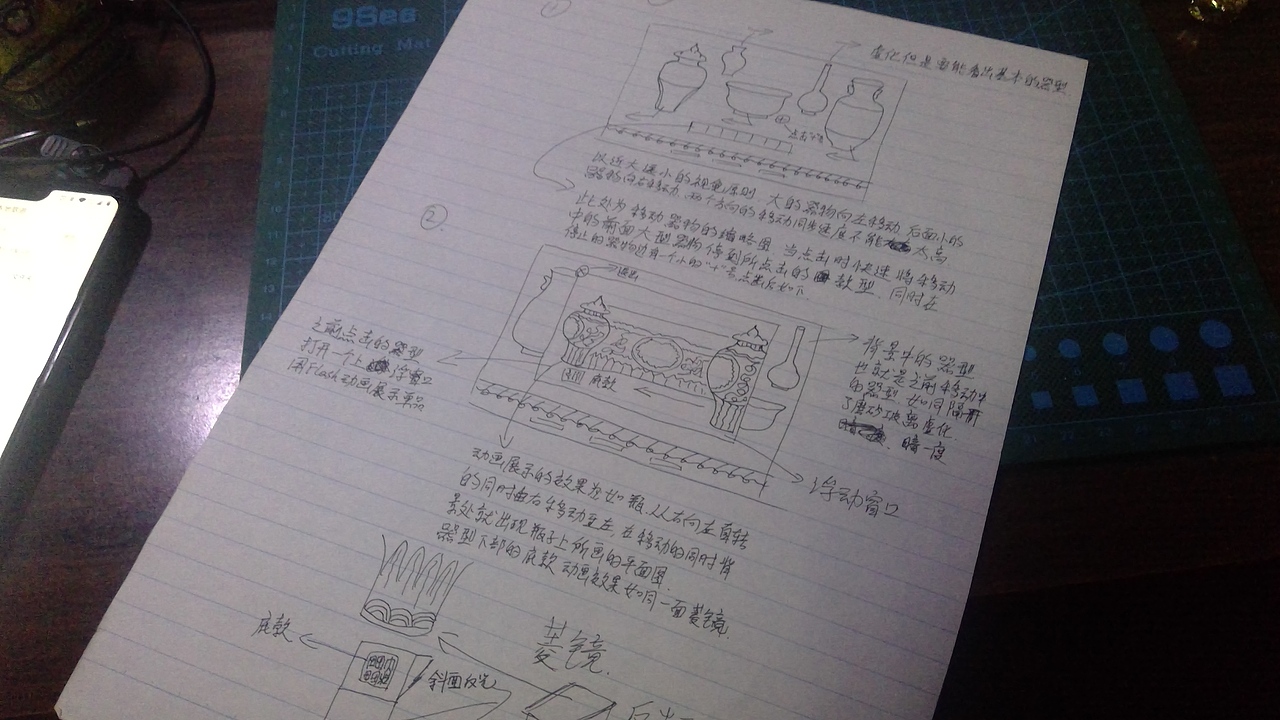 98ees
Cutting Mat
①
变化但是要能看出基本的器型
点击
以近大远小的视觉原则 大的器物向左移动 后面小的
器物向右移动 两个方向的移动同步速度不能太高
此处为移动器物的缩略图 当点击时快速将移动
中的前面大型器物停到所点击的款型 同时在
停止的器物边有一个小的"+"号点击后如下
②
退出
之前点击的器型
打开一个上浮窗口
用Flash动画展示单品
底款
背景中的器型
也就是之前移动中
的器型 如同隔开
了磨砂玻璃虚化
暗一度
浮动窗口
动画展示的效果为如 瓶 从右向左自转
的同时由右移动至左 在移动的同时背
景处就出现瓶子上所画的平面图
器型下部的底款 动画效果如同一面菱镜
菱镜
底款
斜面反光
反光